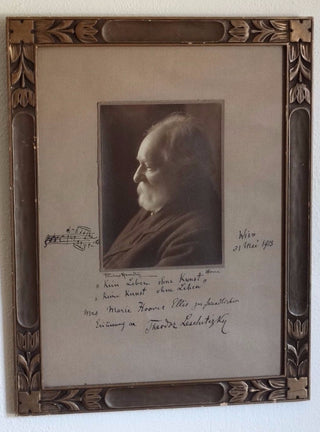 Wien
Mai 1913
„Kein Leben ohne Kunst"
„Keine Kunst ohne Leben"
Mrs Marie Hoover Ellis zur freundlichen
Erinnerung an Theodor Leschetizky